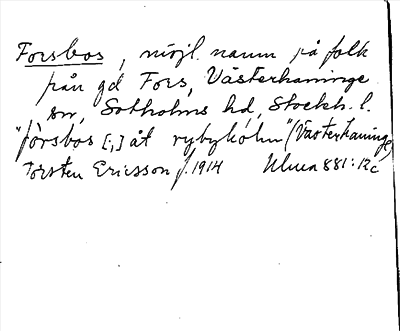 Forsbos, möjl. namn på folk
från gd Fors, Västerhaninge
sn, Sotholms hd, Stockh. l.
"fòrsbos [;] åt rybyhólm" (Västerhaninge,
Torsten Ericsson f. 1914 Uluea 881:12c